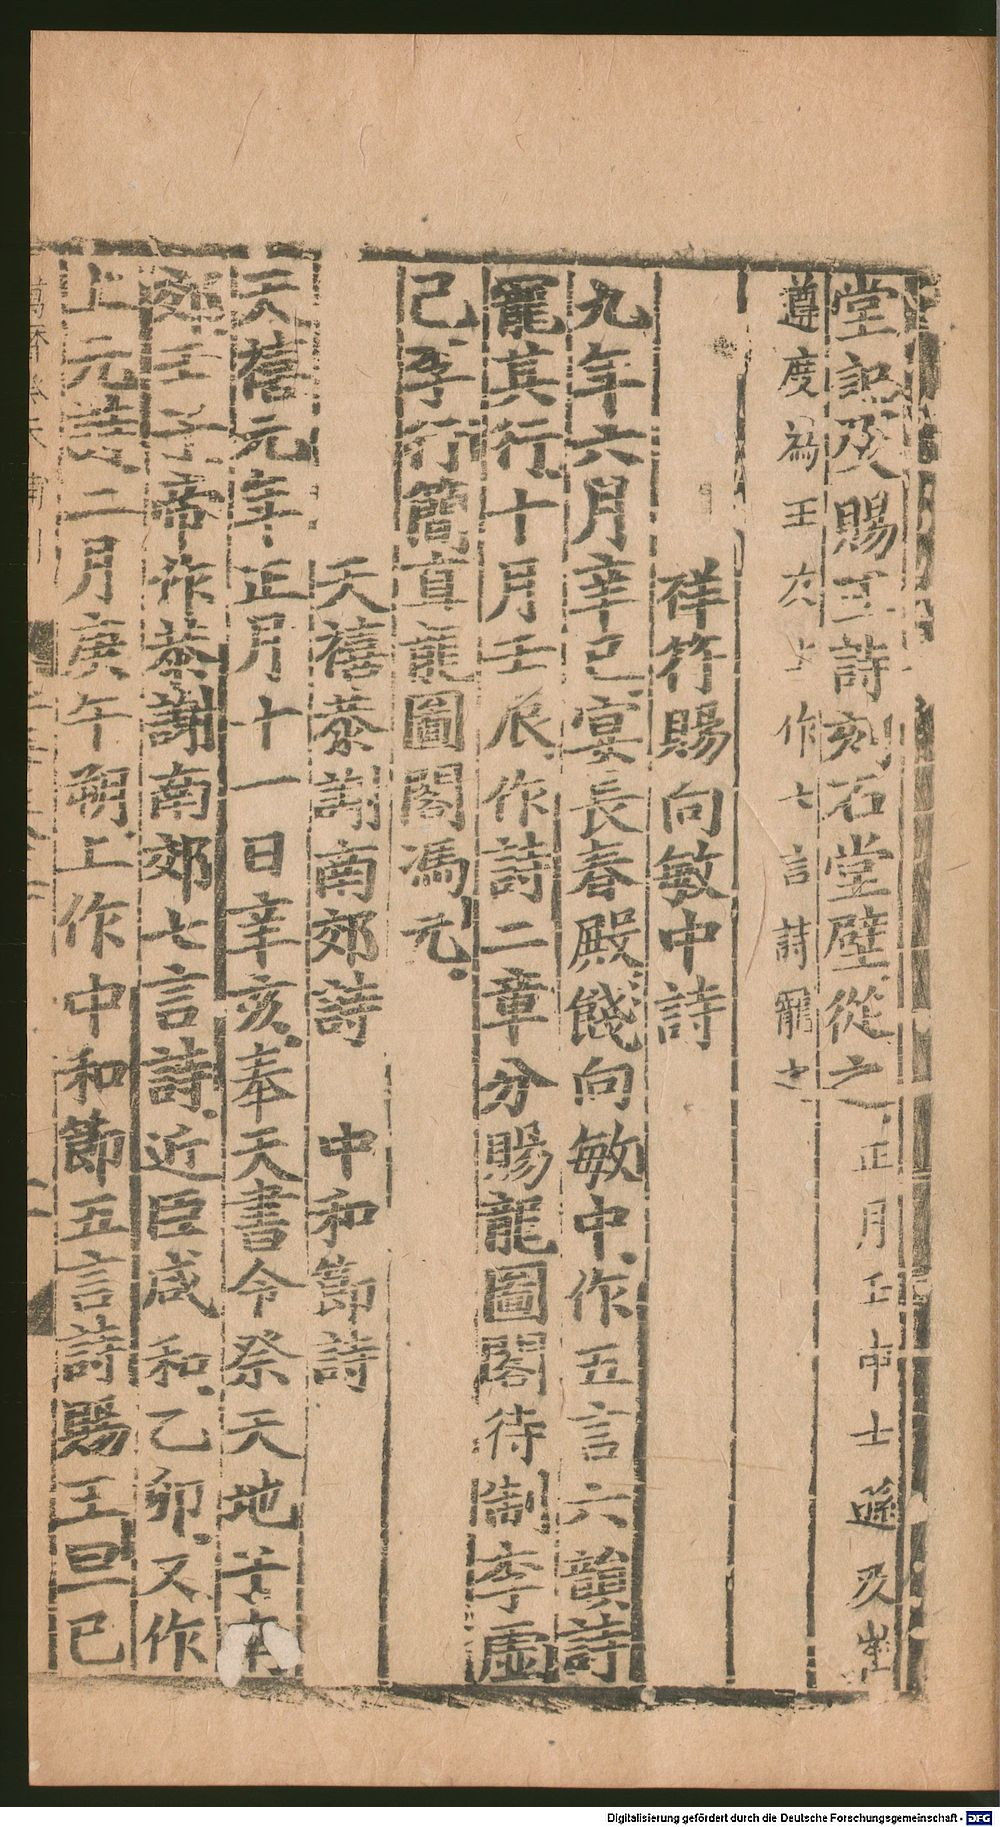 堂記及賜王詩刻石堂壁從之正月壬申士遜及崔
遵度為王友上作七言詩寵之
祥符賜向敏中詩
九年六月辛巳宴長春殿餞向敏中作五言六韻詩
寵其行十月壬辰作詩二章分賜龍圖閣待制李虛
己李行簡直龍圖閣馮元
天禧恭謝南郊詩　中和節詩
天禧元年正月十一日辛亥奉天書合祭天地于南
郊壬子帝作恭謝南郊七言詩近臣咸和乙卯又作
上元詩二月庚午朔上作中和節五言詩賜王旦已
Digitalisierung gefördert durch die Deutsche Forschungsgemeinschaft - DFG